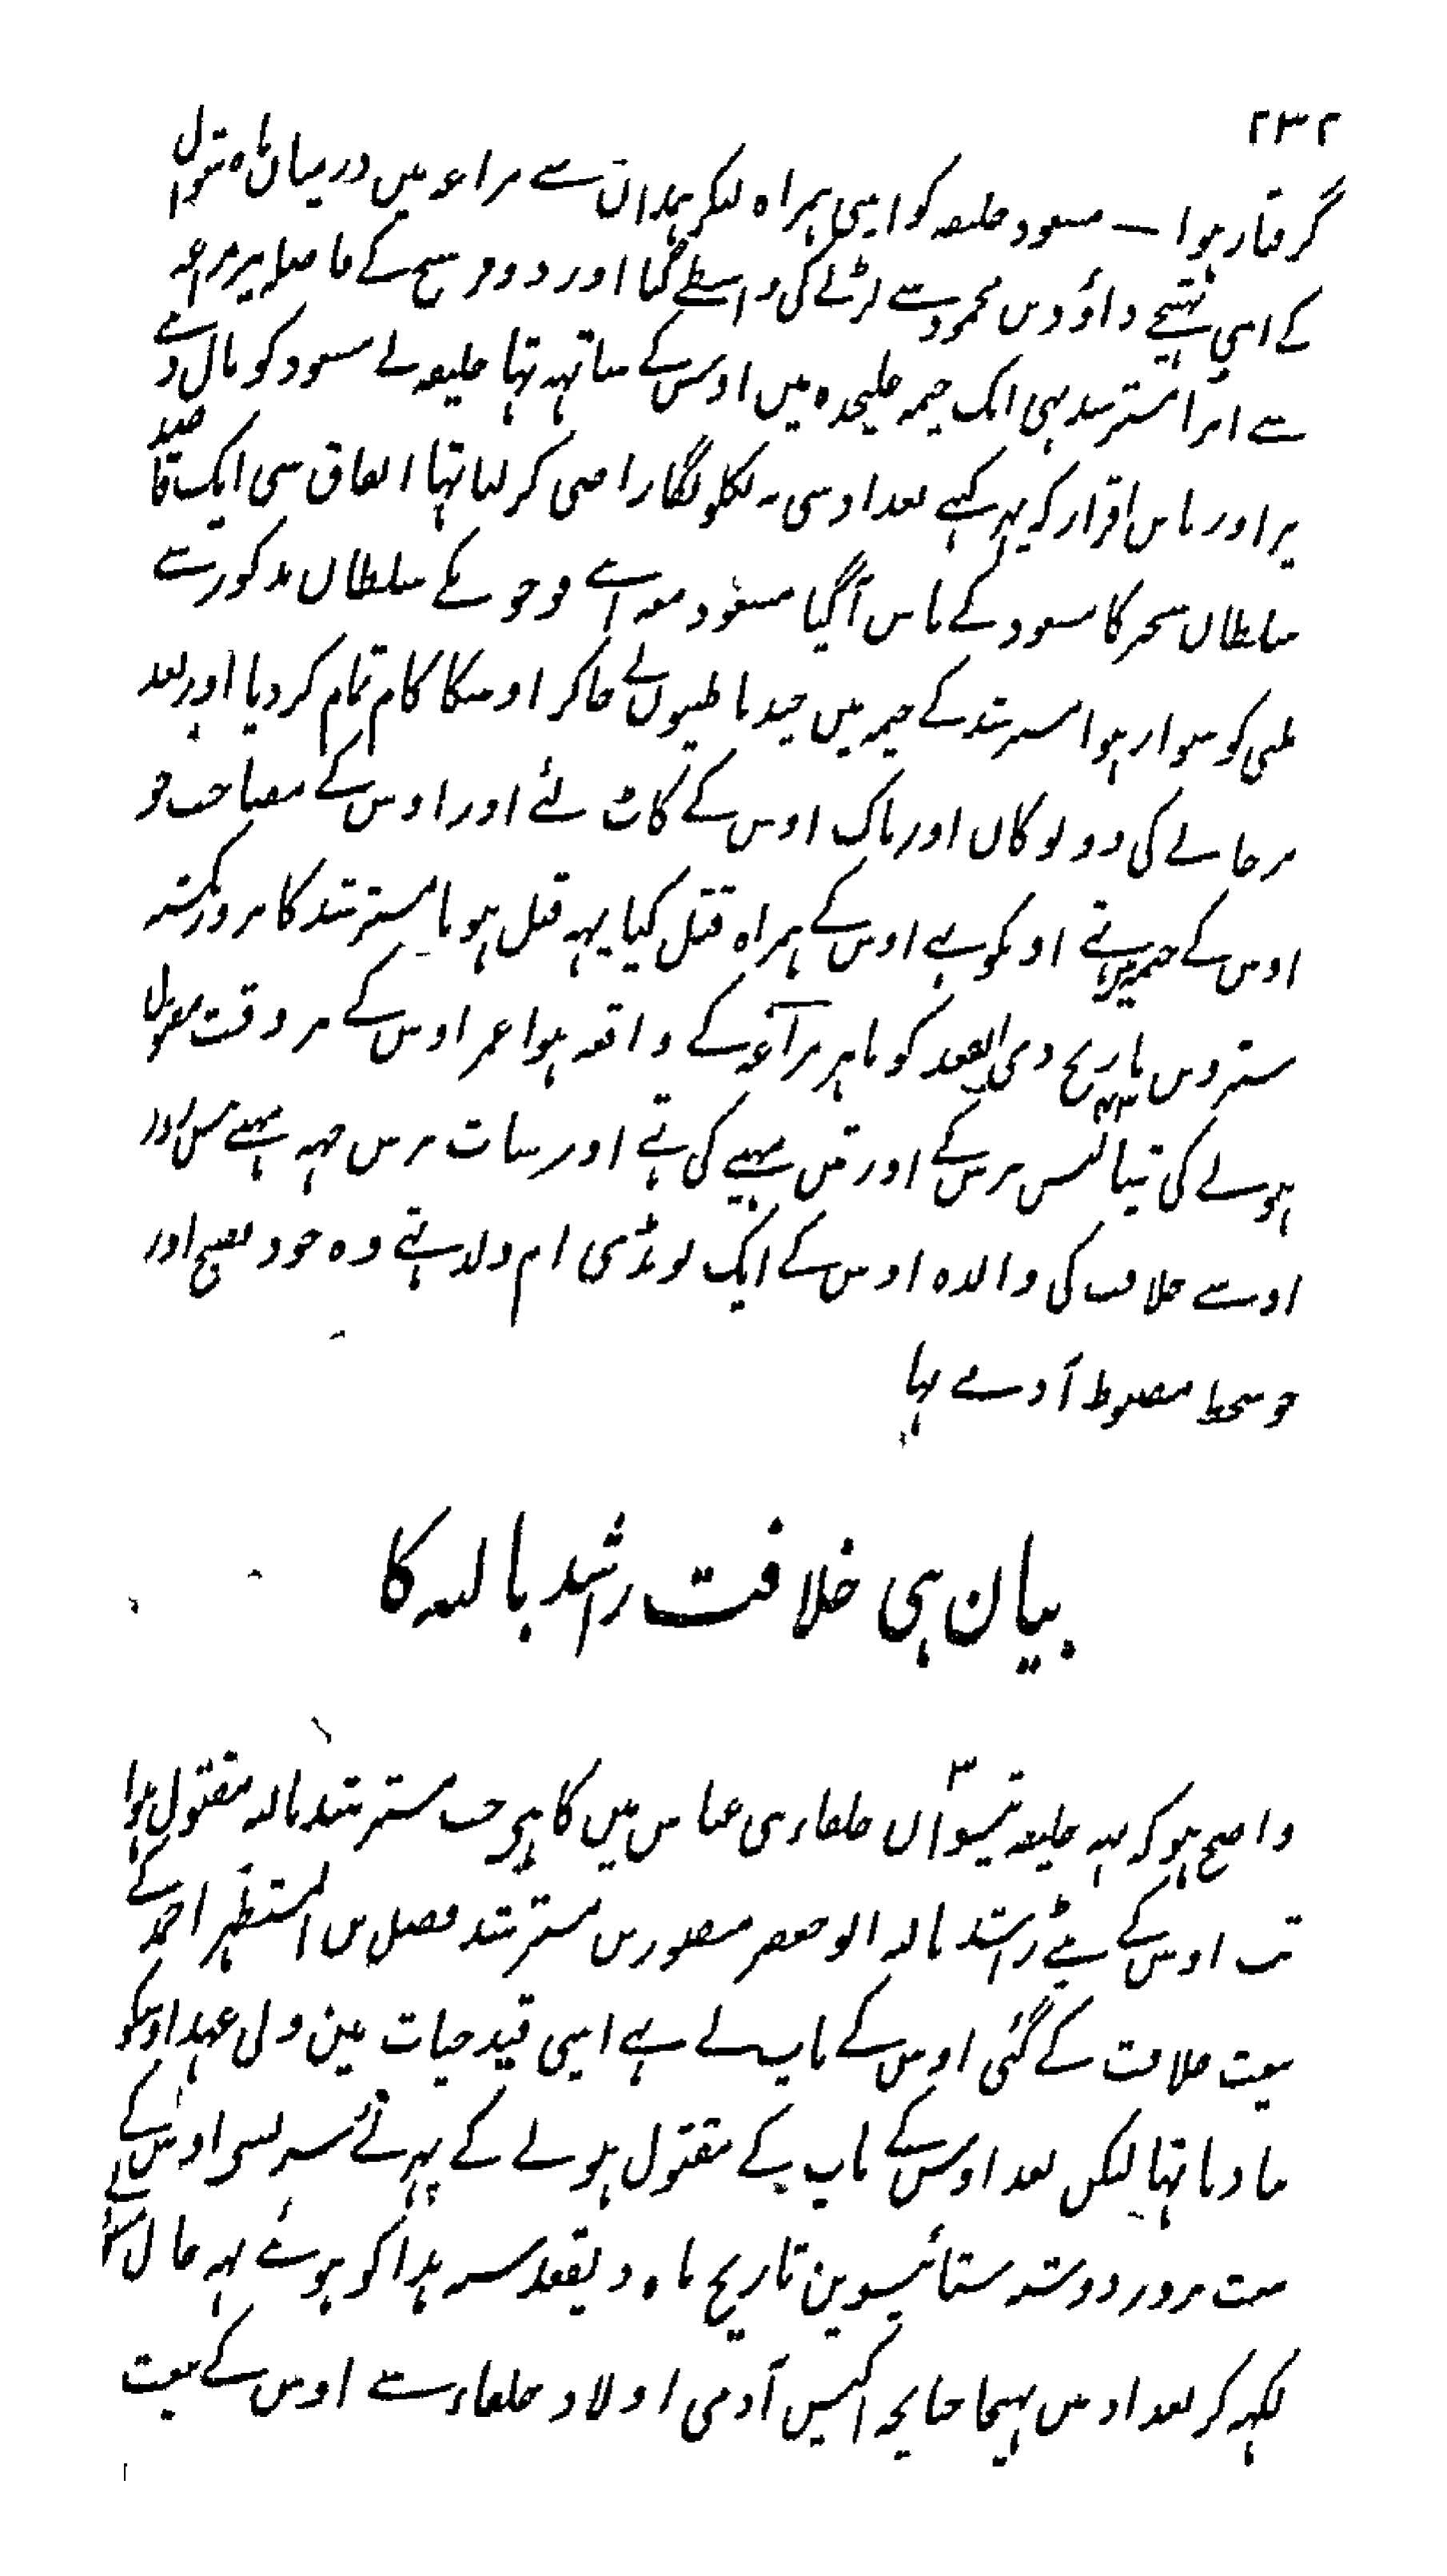 ٢٣٢
گرفتار ہوا — مسعود خلیفہ کو اپنی ہمراہ لیکر ہمدان سے مراغہ میں درمیان ماہ شوال
کے اپنی بھتیجے داؤد بن محمود سے لڑنے کی واسطے گیا اور دو فرسخ کے فاصلہ پر مراغہ
سے اترا مسترشد بہی ایک خیمہ علیحدہ میں اوس کے ساتہہ تہا خلیفہ نے مسعود کو مال دے
پر اور باس اقرار کہ پہر کہے بغداد سی نہ نکلونگا راضی کر لیا تہا اتفاق سی ایک قاصد
سلطان سنجر کا مسعود کے پاس آگیا مسعود معہ اپنے فوجو کے سلطان مذکور سے
ملنی کو سوار ہوا مسترشد کے خیمہ میں چند باطنیوں نے جاکر اوسکا کام تمام کر دیا اور بعد
مرجانے کی دونو کان اور ناک اوس کے کاٹ لئے اور اوس کے مصاحب جو
اوس کے خیمہ میں تہے اونکو بہے اوس کے ہمراہ قتل کیا یہہ قتل ہونا مسترشد کا بروز یکشنبہ
سترویں تاریخ ذی القعد کو باہر مراغہ کے واقعہ ہوا عمر اوس کے بر وقت مقتول
ہونے کی تیتالیس ٤٣ برس کے اور تین مہینے کی تہے اور سات برس چہہ مہینے بیس روز
اوسے خلافت کی والدہ اوس کے ایک لونڈی ام ولد تہے وہ خود فصیح اور
خوشخط مضبوط آدمے تہا
بیان ہی خلافت راشد باللہ کا
واضح ہو کہ یہہ خلیفہ تیسواں ٣ خلفاء بنی عباس میں کا ہی جب مسترشد باللہ مقتول ہوا
تب اوس کے بیٹے راشد باللہ ابو جعفر منصور بن مسترشد فضل بن المستظہر احمد کے
بیعت خلافت کے گئی اوس کے باپ نے ہے اپنی قید حیات مین ولی عہد اوسکو
بنا دیا تہا لیکن بعد اوس کے باپ کے مقتول ہونے کے پہر نئے سر سی اوس کے
بیعت بروز دوشنبہ ستائیسوین تاریخ ماہ ذیقعد سنہ ہذا کو ہوئے یہہ حال مسعود نے
لکہہ کر بغداد میں بہیجا چنانچہ اکیس آدمی اولاد خلفاء سے اوس کے بیعت